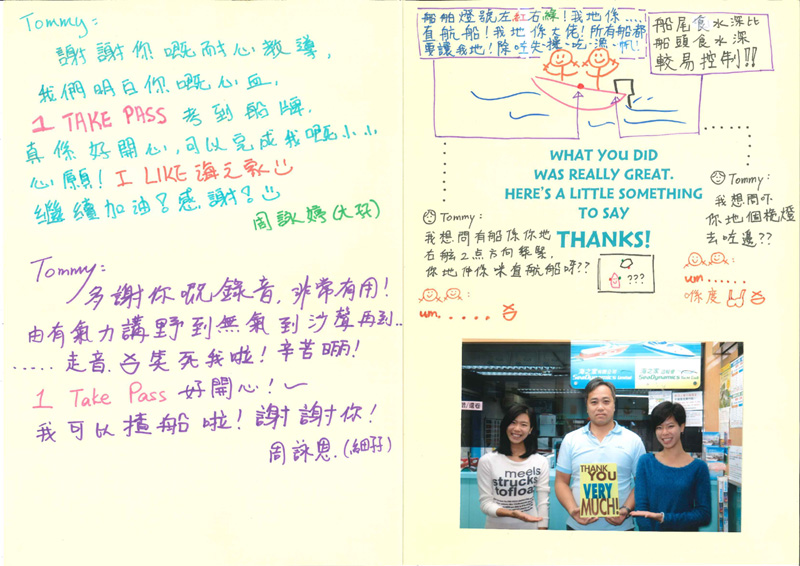 Tommy:
謝謝你嘅耐心教導,
我們明白你嘅心血,
1 TAKE PASS 考到船牌.
真係好開心,可以完成我嘅小小
心願! I LIKE 海之家
繼續加油! 感謝!
周詠婷(大孖)
Tommy:
多謝你嘅錄音,非常有用!
由有氣力講野到無氣到沙聲再到..
.....走音. 笑死我啦! 辛苦晒!
1 Take Pass 好開心!
我可以揸船啦! 謝謝你!
周詠恩.(細孖)
船舶燈號左紅右綠! 我地係....
直航船! 我地係大佬! 所有船都
要讓我地! 除咗失·操·吃·漁·帆!
船尾食水深比
船頭食水深
較易控制!!
WHAT YOU DID
WAS REALLY GREAT.
HERE'S A LITTLE SOMETHING
TO SAY
THANKS!
Tommy:
我想問有船係你地
右舷2点方向
你地仲係咪直航船呀??
???
um.....
Tommy:
我想問吓
你地個桅燈
去咗邊??
um......
係度
海之家遊艇
SeaDynamics
海之家
SeaDynamics
meets
structs
tofloat
THANK
YOU
VERY
MUCH!